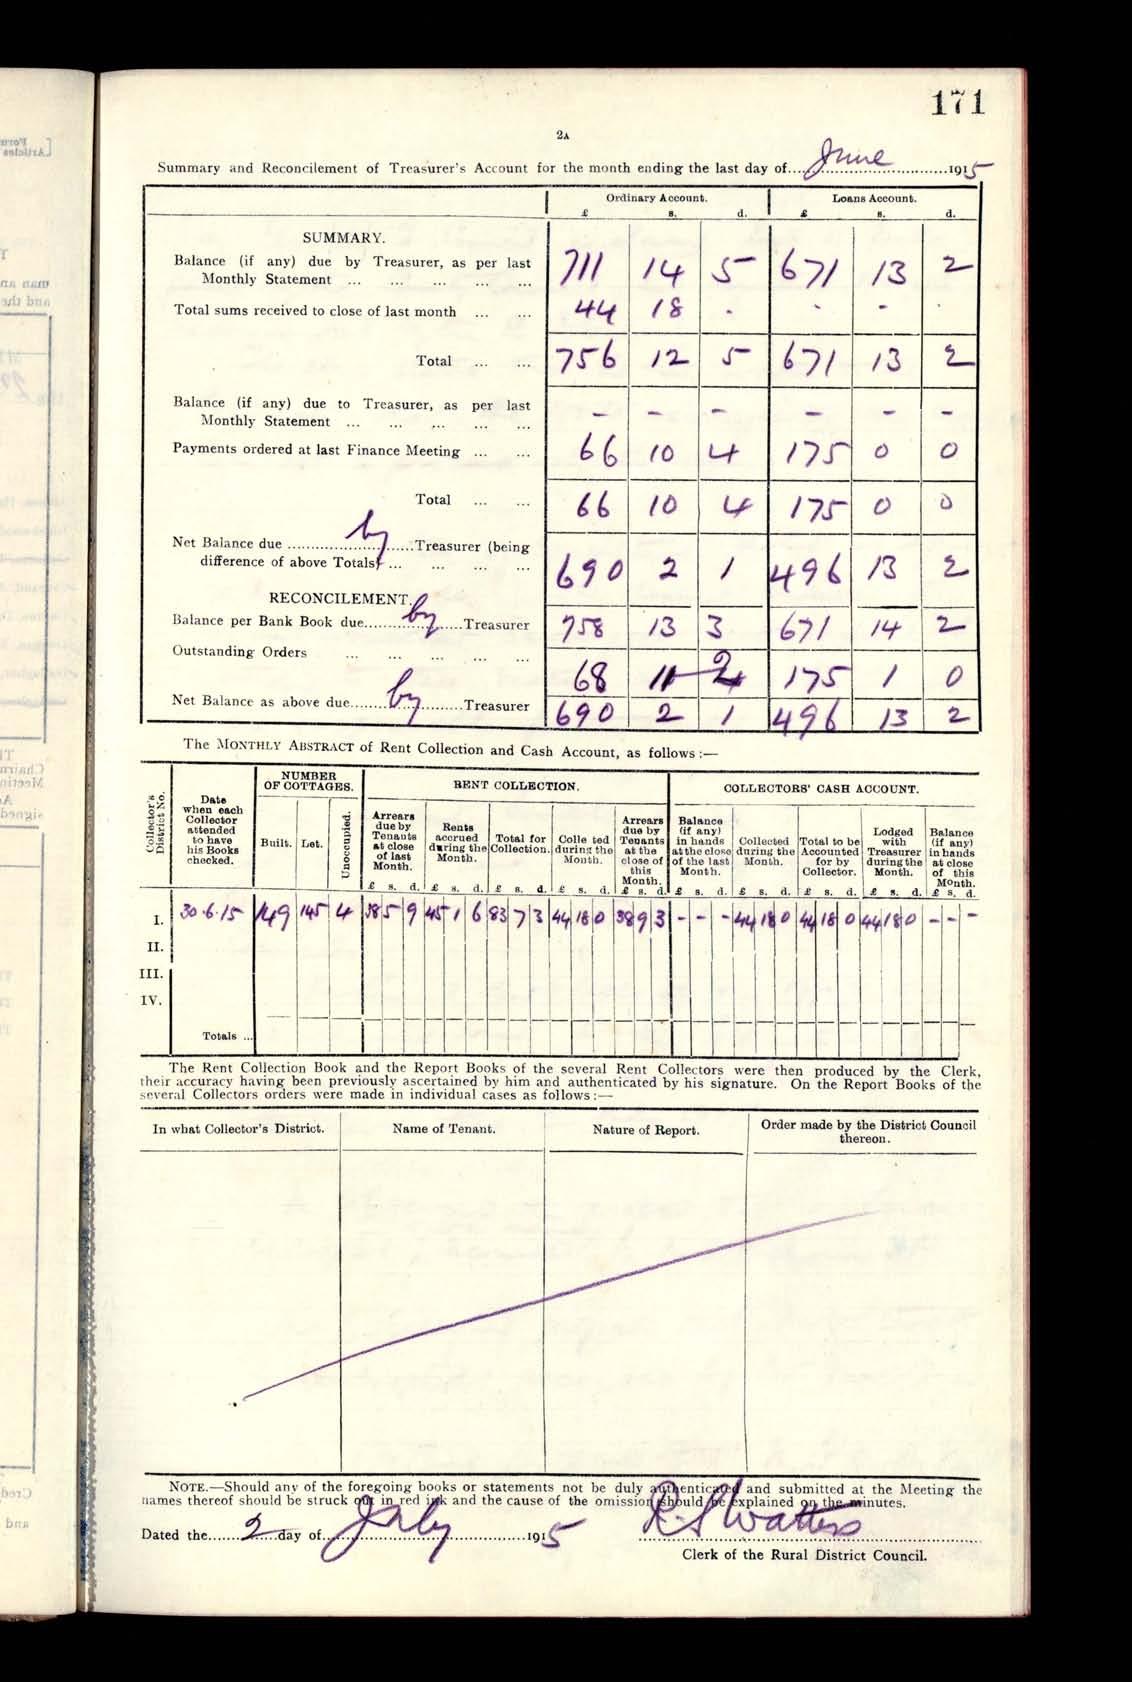 171
2A
Summary and Reconcilement of Treasurer's Account for the month ending the last day of....June....1915
Ordinary Account. Loans Account.
£ s. d. £ s. d.
SUMMARY.
Balance (if any) due by Treasurer, as per last
Monthly Statement ... ... ... ... ... 711 14 5 671 13 2
Total sums received to close of last month ... ... 44 18 - - - -
Total ... ... 756 12 5 671 13 2
Balance (if any) due to Treasurer, as per last
Monthly Statement ... ... ... ... ... - - - - - -
Payments ordered at last Finance Meeting ... ... 66 10 4 175 0 0
Total ... ... 66 10 4 175 0 0
Net Balance due ....by....Treasurer (being
difference of above Totals) ... ... ... ... 690 2 1 496 13 2
RECONCILEMENT.
Balance per Bank Book due....by....Treasurer 758 13 3 671 14 2
Outstanding Orders ... ... ... ... ... 68 11 2 175 1 0
Net Balance as above due....by....Treasurer 690 2 1 496 13 2
The MONTHLY ABSTRACT of Rent Collection and Cash Account, as follows:—
Collector's District No.
Date when each Collector attended to have his Books checked.
NUMBER OF COTTAGES.
Built. Let. Unoccupied.
RENT COLLECTION.
Arrears due by Tenants at close of last Month.
Rents accrued during the Month.
Total for Collection.
Colle ted during the Month.
Arrears due by Tenants at the close of this Month.
COLLECTORS' CASH ACCOUNT.
Balance (if any) in hands at the close of the last Month.
Collected during the Month.
Total to be Accounted for by Collector.
Lodged with Treasurer during the Month.
Balance (if any) in hands at close of this Month.
£ s. d. £ s. d. £ s. d. £ s. d. £ s. d. £ s. d. £ s. d. £ s. d. £ s. d. £ s. d.
I. 30.6.15 149 145 4 38 5 9 45 1 6 83 7 3 44 18 0 38 9 3 - - - 44 18 0 44 18 0 44 18 0 - - -
II.
III.
IV.
Totals ...
The Rent Collection Book and the Report Books of the several Rent Collectors were then produced by the Clerk,
their accuracy having been previously ascertained by him and authenticated by his signature. On the Report Books of the
several Collectors orders were made in individual cases as follows:—
In what Collector's District. Name of Tenant. Nature of Report. Order made by the District Council thereon.
NOTE.—Should any of the foregoing books or statements not be duly authenticated and submitted at the Meeting the
names thereof should be struck out in red ink and the cause of the omission should be explained on the minutes.
Dated the....2....day of....July....1915 R. S. Watters
Clerk of the Rural District Council.